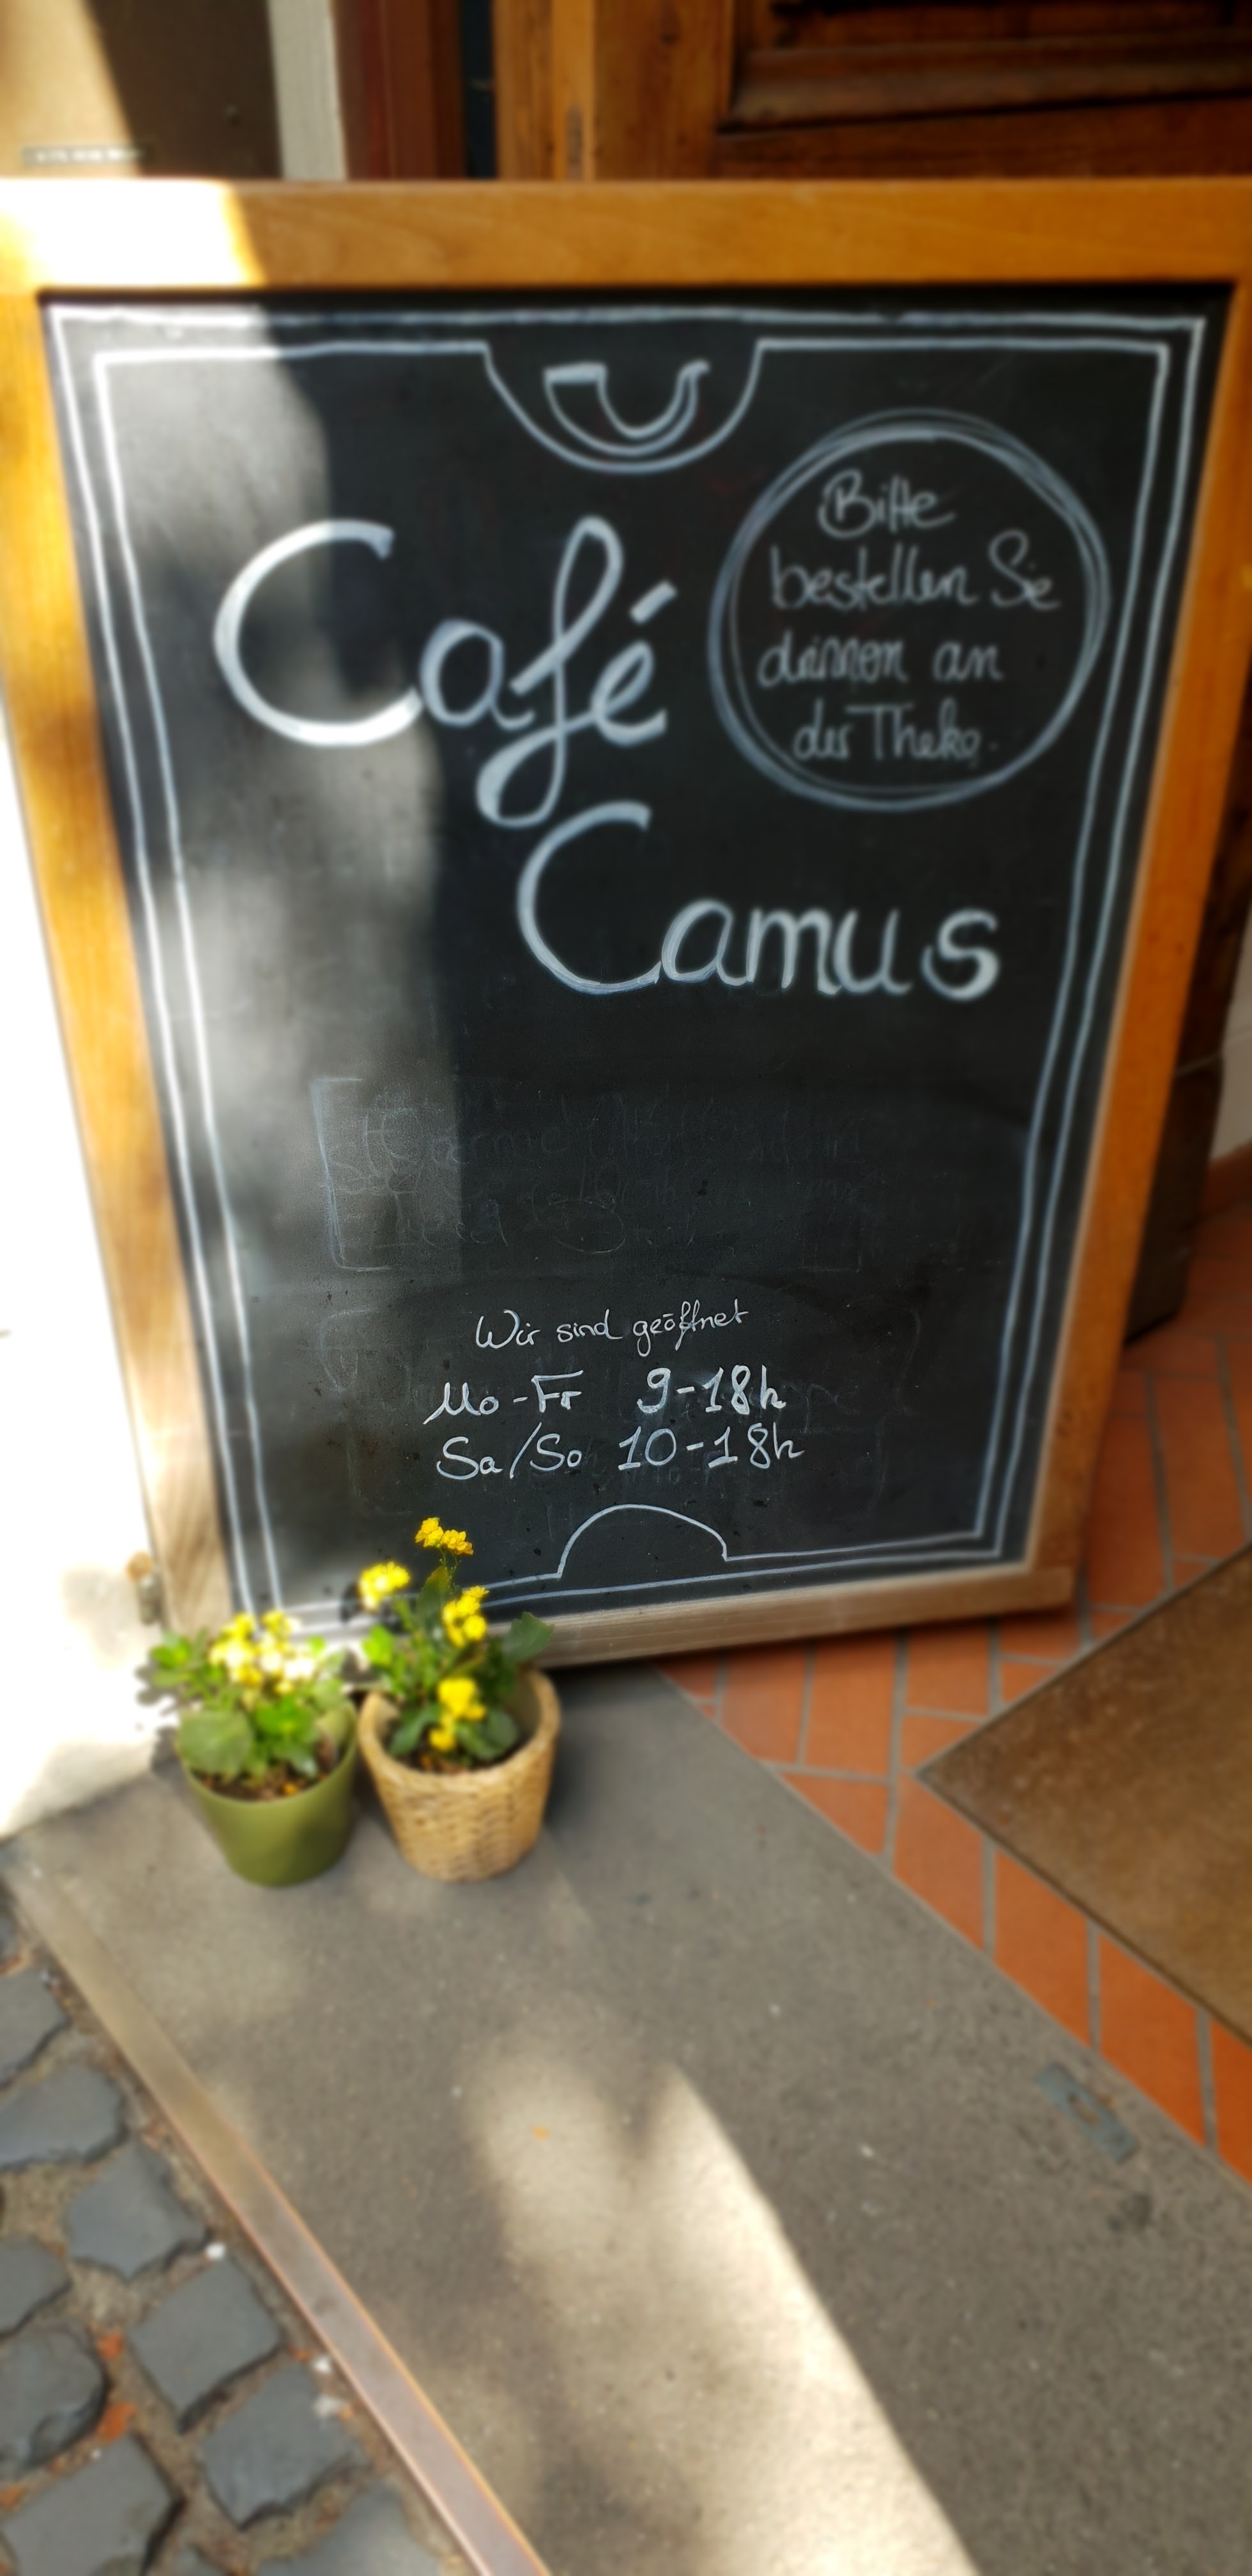 Café
Camus
Bitte
bestellen Sie
drinnen an
der Theke.
Wir sind geöffnet
Mo-Fr 9-18h
Sa/So 10-18h